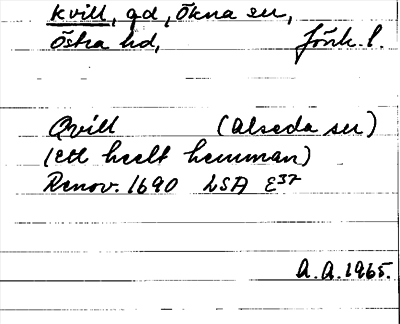 Kvill, gd, Ökna sn,
Östra hd, Jönk. l.
Qvill (Alseda sn)
(ett heelt hemman)
Renov. 1690 LSA E37
A.A. 1965.